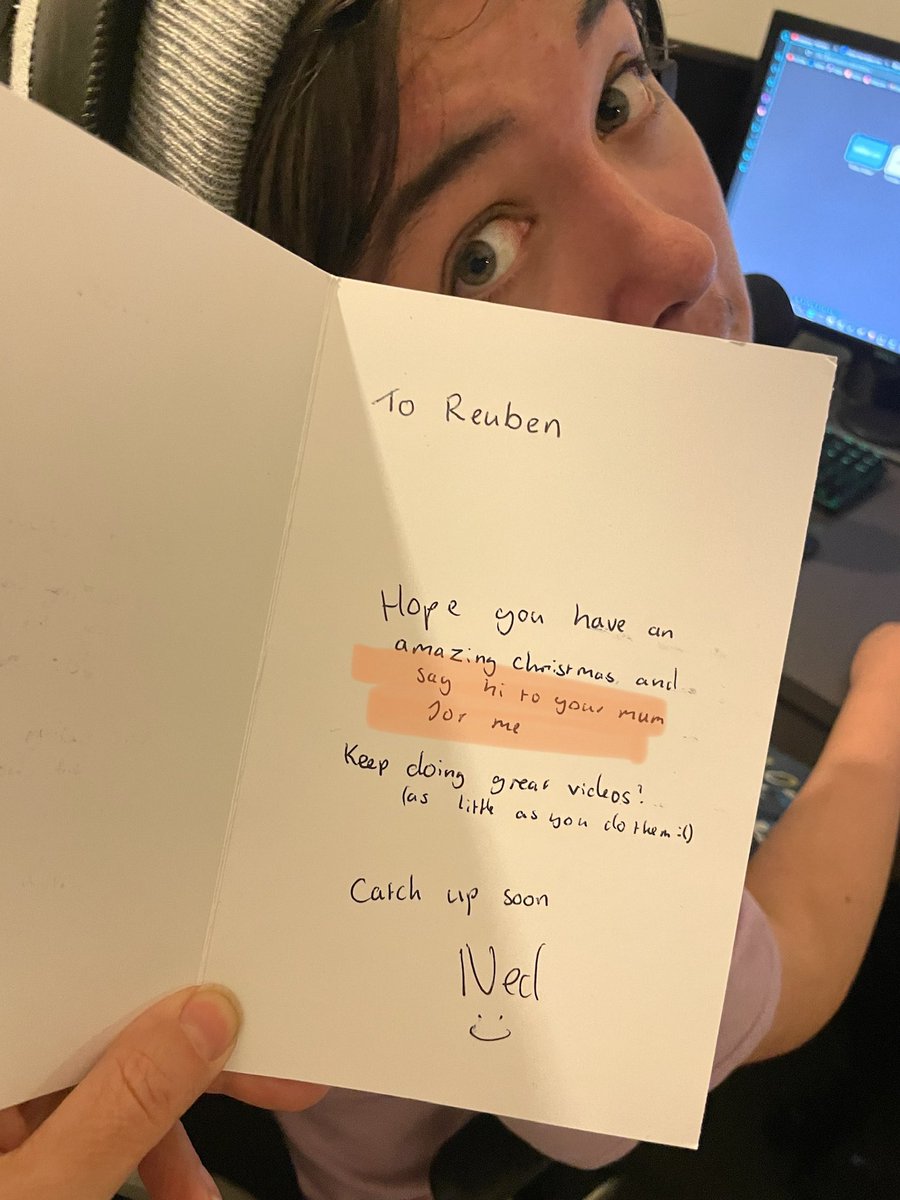 To Reuben
Hope you have an
amazing christmas and
say hi to your mum
for me
Keep doing great videos!
(as little as you do them :()
Catch up soon
Ned